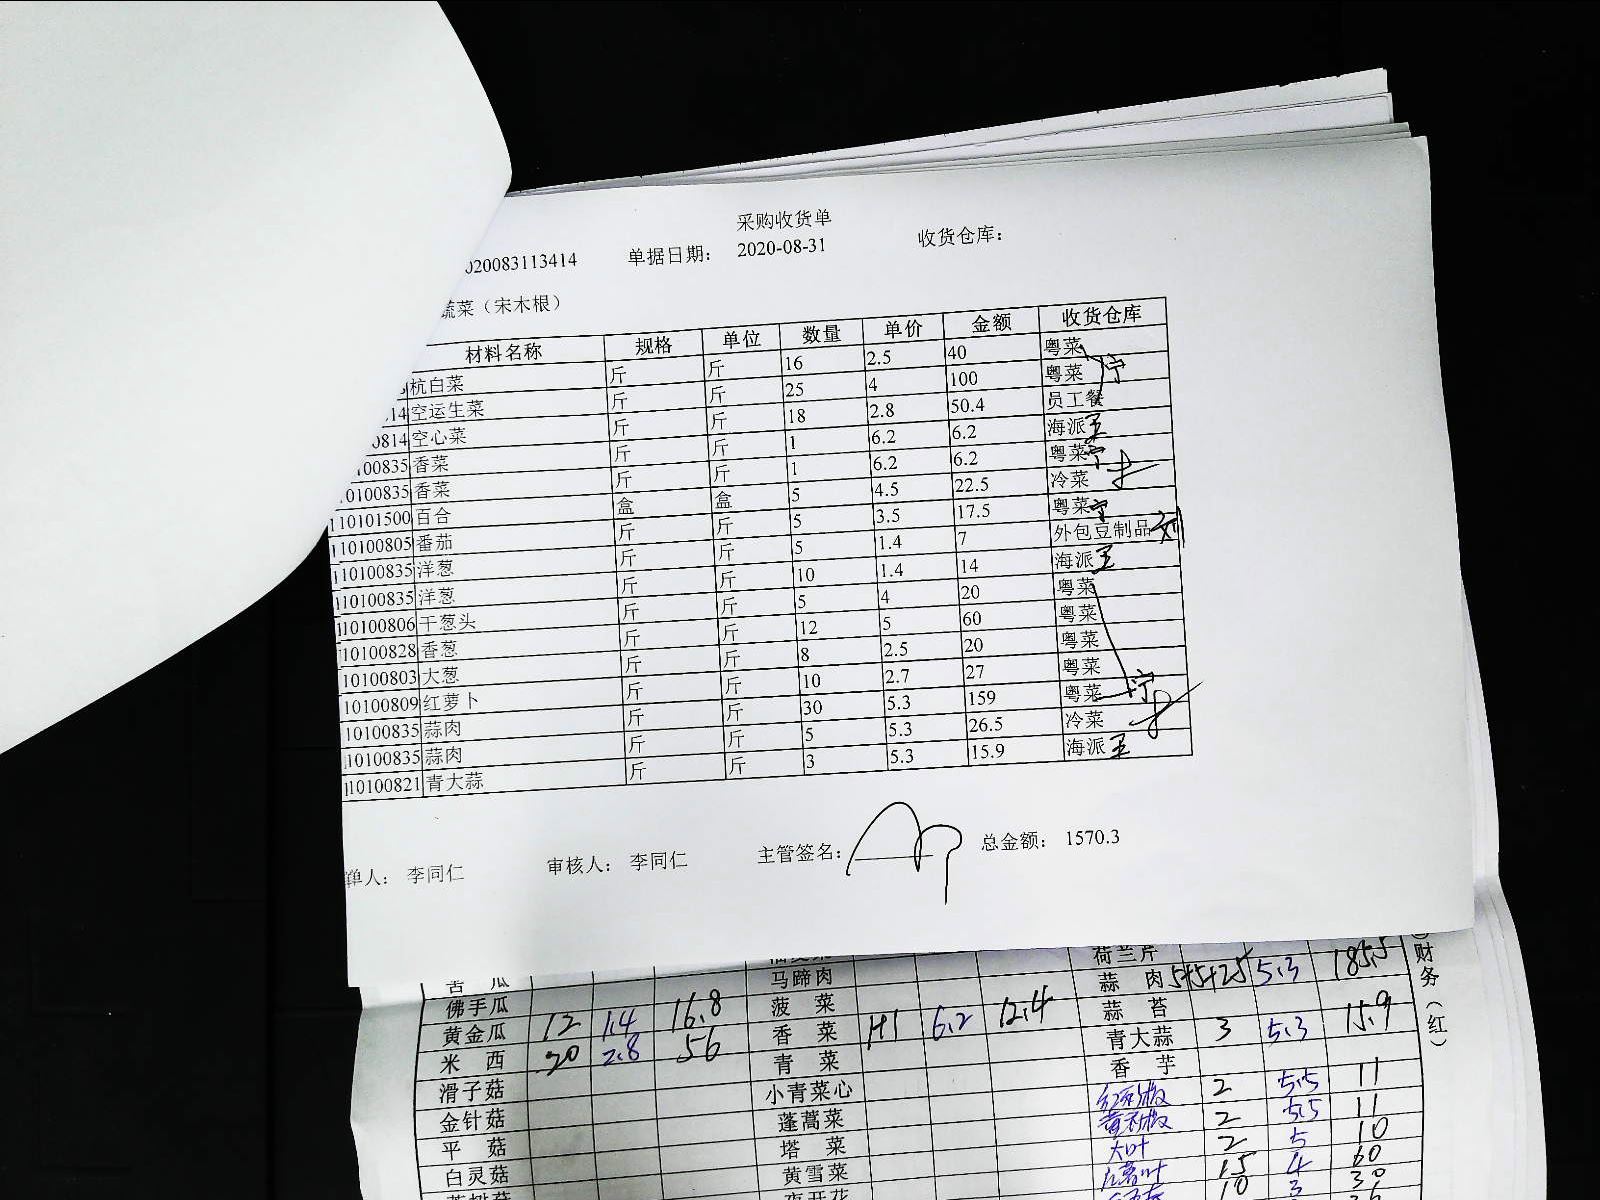 采购收货单
020083113414 单据日期： 2020-08-31 收货仓库：
蔬菜（宋木根）
材料名称 规格 单位 数量 单价 金额 收货仓库
杭白菜 斤 斤 16 2.5 40 粤菜
14 空运生菜 斤 斤 25 4 100 粤菜 宁
0814 空心菜 斤 斤 18 2.8 50.4 员工餐
100835 香菜 斤 斤 1 6.2 6.2 海派 王
10100835 香菜 斤 斤 1 6.2 6.2 粤菜 宁
110101500 百合 盒 盒 5 4.5 22.5 冷菜
110100805 番茄 斤 斤 5 3.5 17.5 粤菜 宁
110100835 洋葱 斤 斤 5 1.4 7 外包豆制品 刘
110100835 洋葱 斤 斤 10 1.4 14 海派 王
110100806 干葱头 斤 斤 5 4 20 粤菜
110100828 香葱 斤 斤 12 5 60 粤菜
110100803 大葱 斤 斤 8 2.5 20 粤菜
110100809 红萝卜 斤 斤 10 2.7 27 粤菜
110100835 蒜肉 斤 斤 30 5.3 159 粤菜 宁
110100835 蒜肉 斤 斤 5 5.3 26.5 冷菜
110100821 青大蒜 斤 斤 3 5.3 15.9 海派 王
单人： 李同仁 审核人： 李同仁 主管签名： 总金额： 1570.3
荷兰芹
苦瓜 马蹄肉 蒜肉 5+5+25 5.3 185.5
佛手瓜 菠菜 蒜苔
黄金瓜 12 1.4 16.8 香菜 1+1 6.2 12.4 青大蒜 3 5.3 15.9
米西 20 2.8 56 青菜 香芋
滑子菇 小青菜心 红彩椒 2 5.5 11
金针菇 蓬蒿菜 黄彩椒 2 5.5 11
平菇 塔菜 大叶 2 5 10
白灵菇 黄雪菜 15 4 60
10 3 30
财务（红）